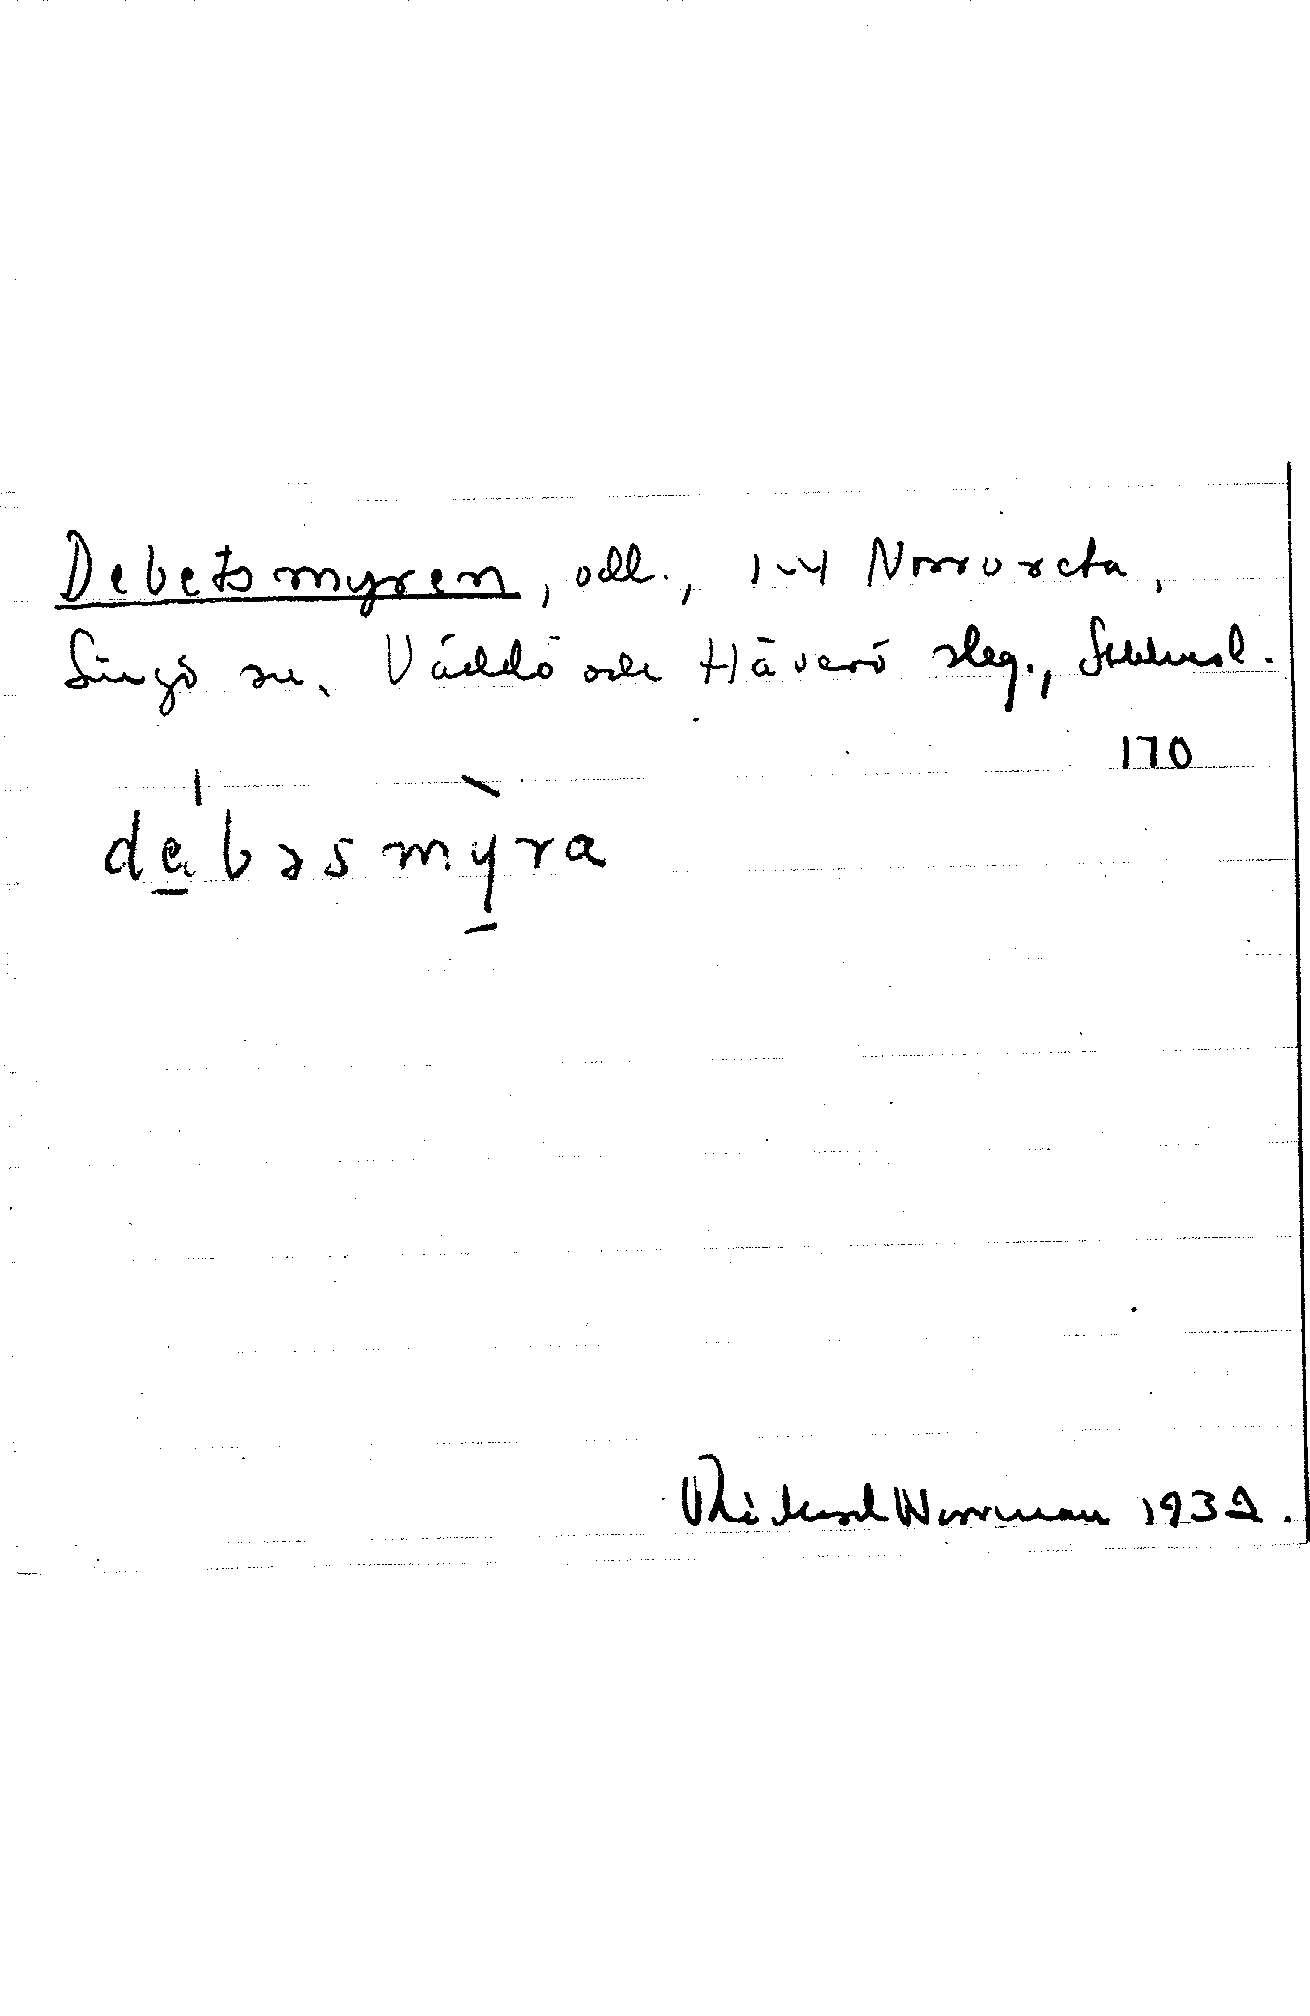 Debetsmyren, odl., 1-4 Norrvreta,
Singö sn. Väddö och Häverö slag., Sthlmsl.
170
de̱ˈbəsmỳ̱ra
Rikard Norrman 1932.